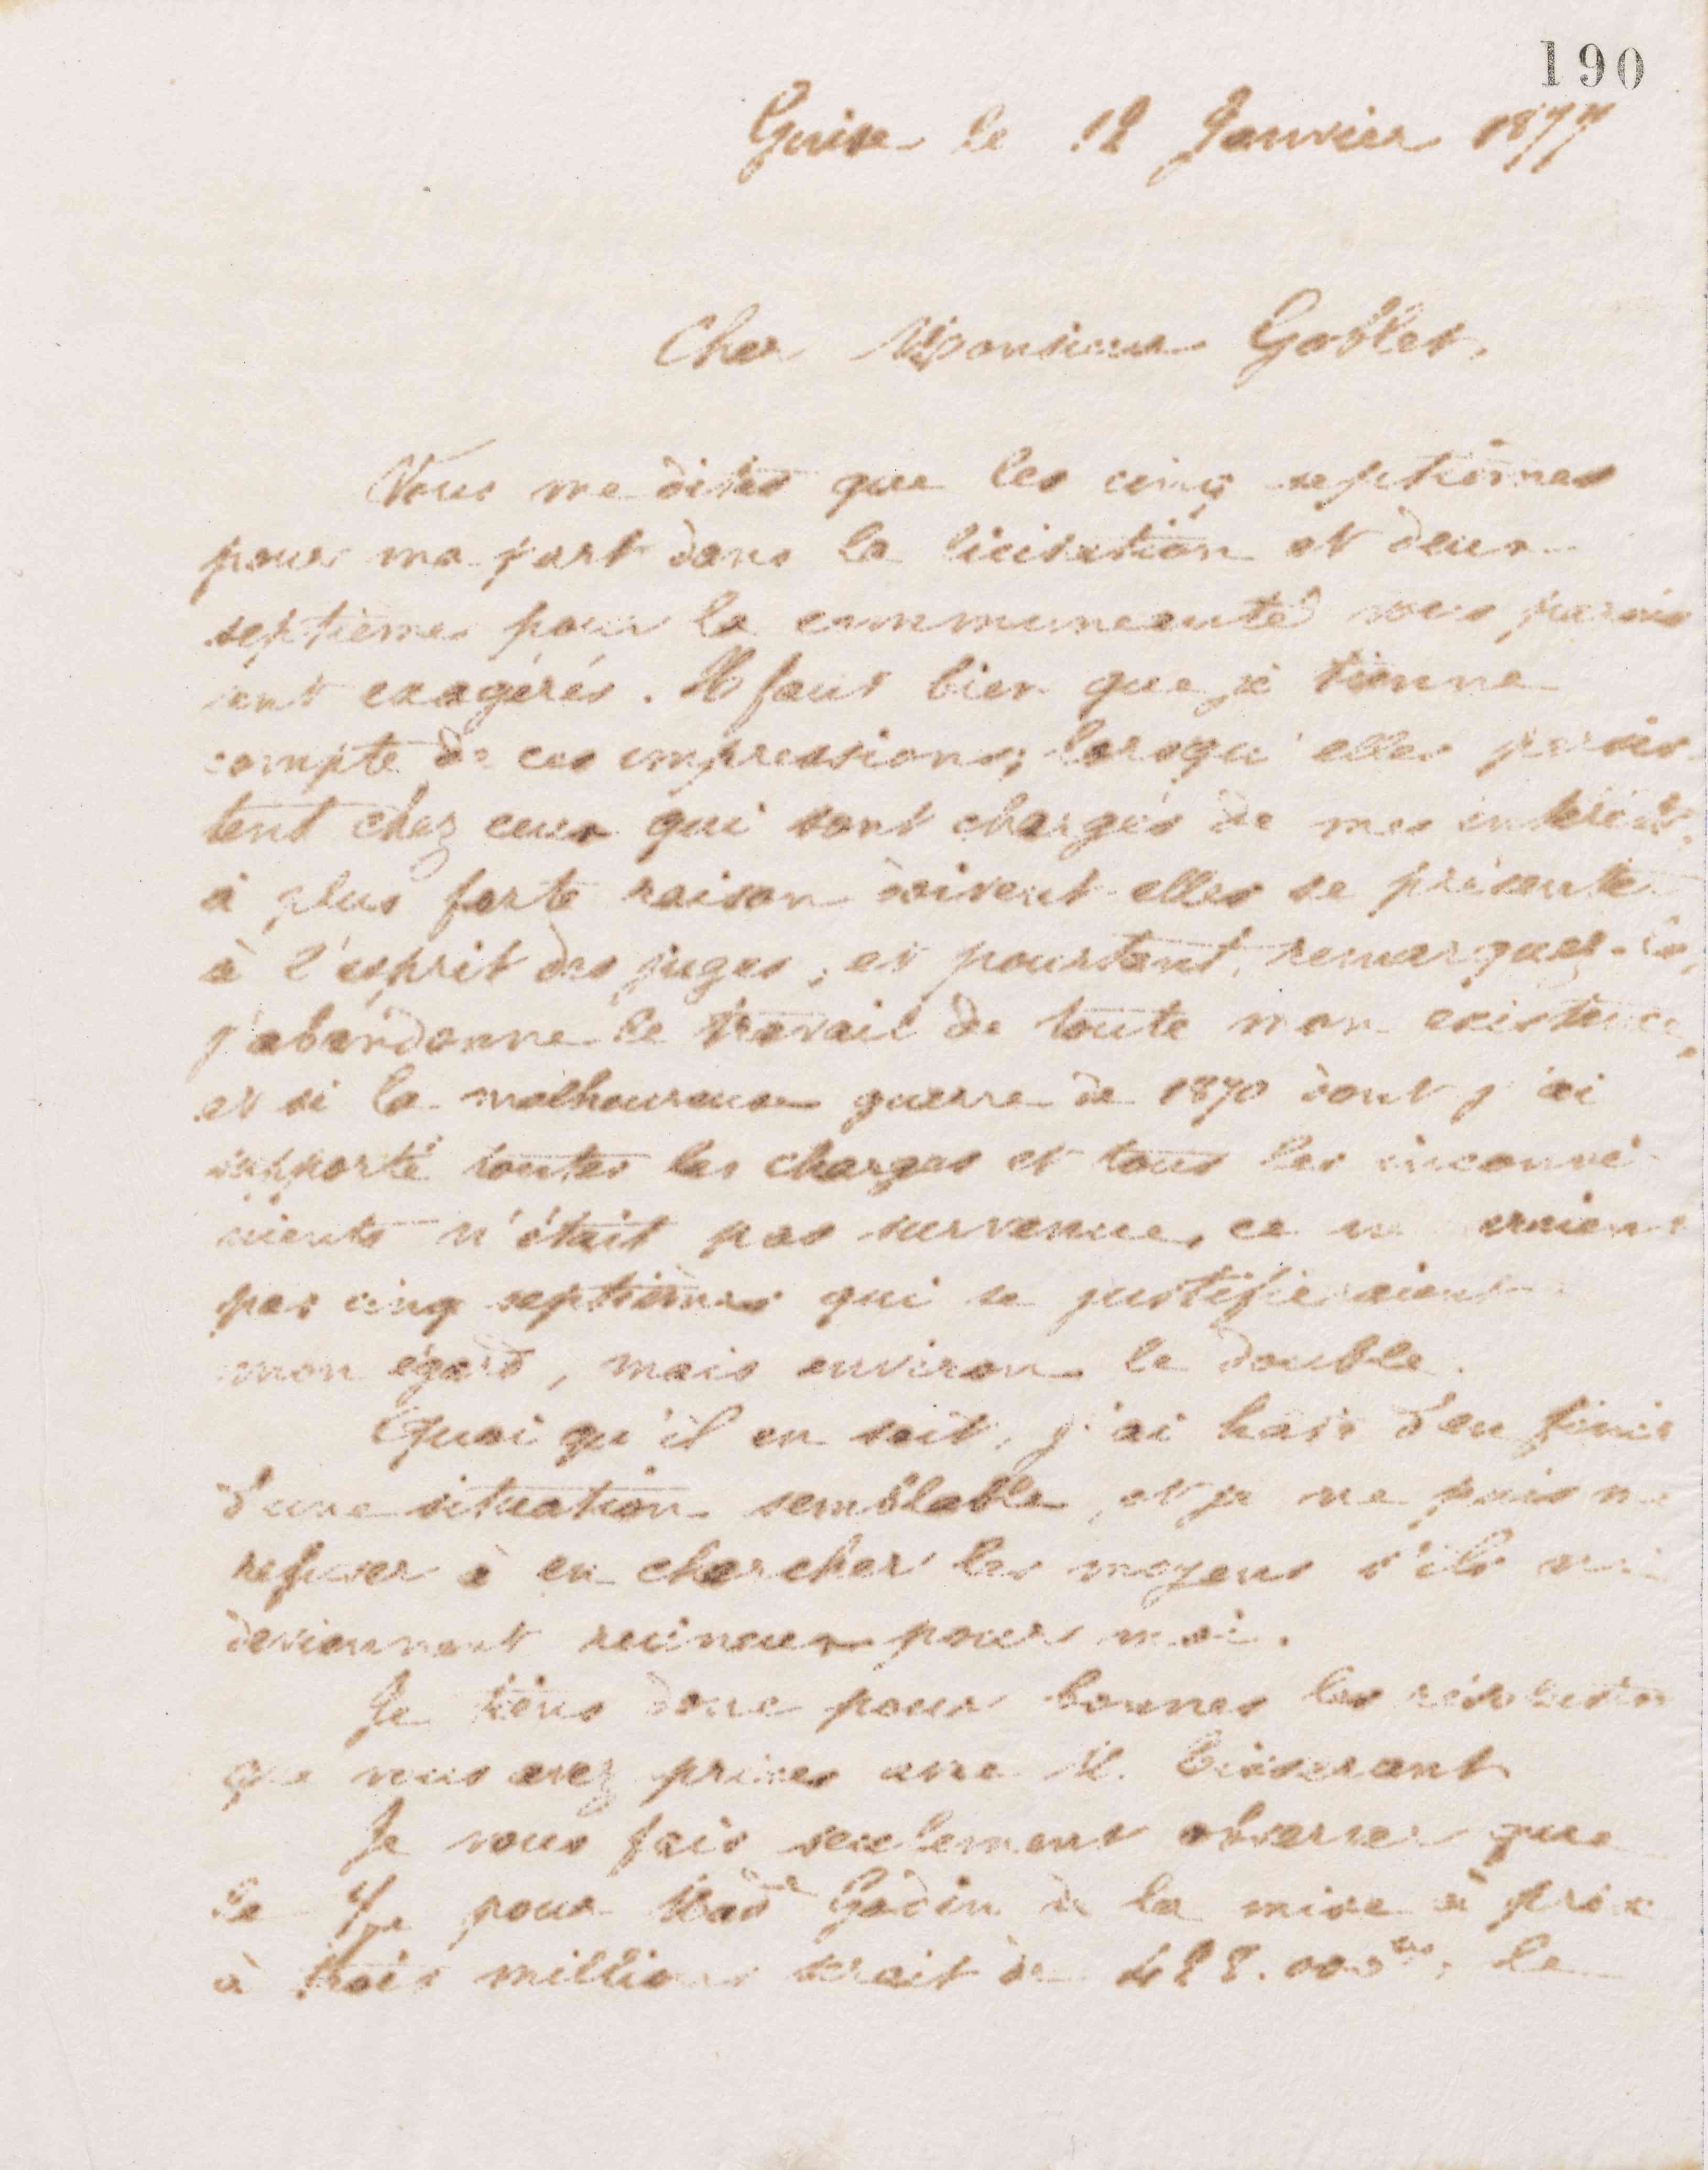 190
Guise le 12 Janvier 1877
Cher Monsieur Goblet,
Vous me dites que les cinq septièmes
pour ma part dans la licitation et deux
septièmes pour la communauté vous parais
sent exagérés. Il faut bien que je tienne
compte de ces impressions; lorsqu'elles persis
tent chez ceux qui sont chargés de mes intérêts,
à plus forte raison doivent-elles se présenter
à l'esprit des juges; et pourtant, remarquez-le,
j'abandonne le travail de toute mon existence,
et si la malheureuse guerre de 1870 dont j'ai
supporté toutes les charges et tous les inconvé
nients n'était pas survenue, ce ne
pas cinq septièmes qui se justifieraient
mon égard, mais environ le double.
Quoi qu'il en soit, j'ai hâte d'en finir
d'une situation semblable, et je ne puis me
refuser à en chercher les moyens s'ils ne
deviennent ruineux pour moi.
Je tiens donc pour bonnes les résolutions
que vous avez prises avec M.
Je vous fais seulement observer que
le 1/7e pour Made Godin de la mise à prix
à trois millions serait de 428.000 frs, le